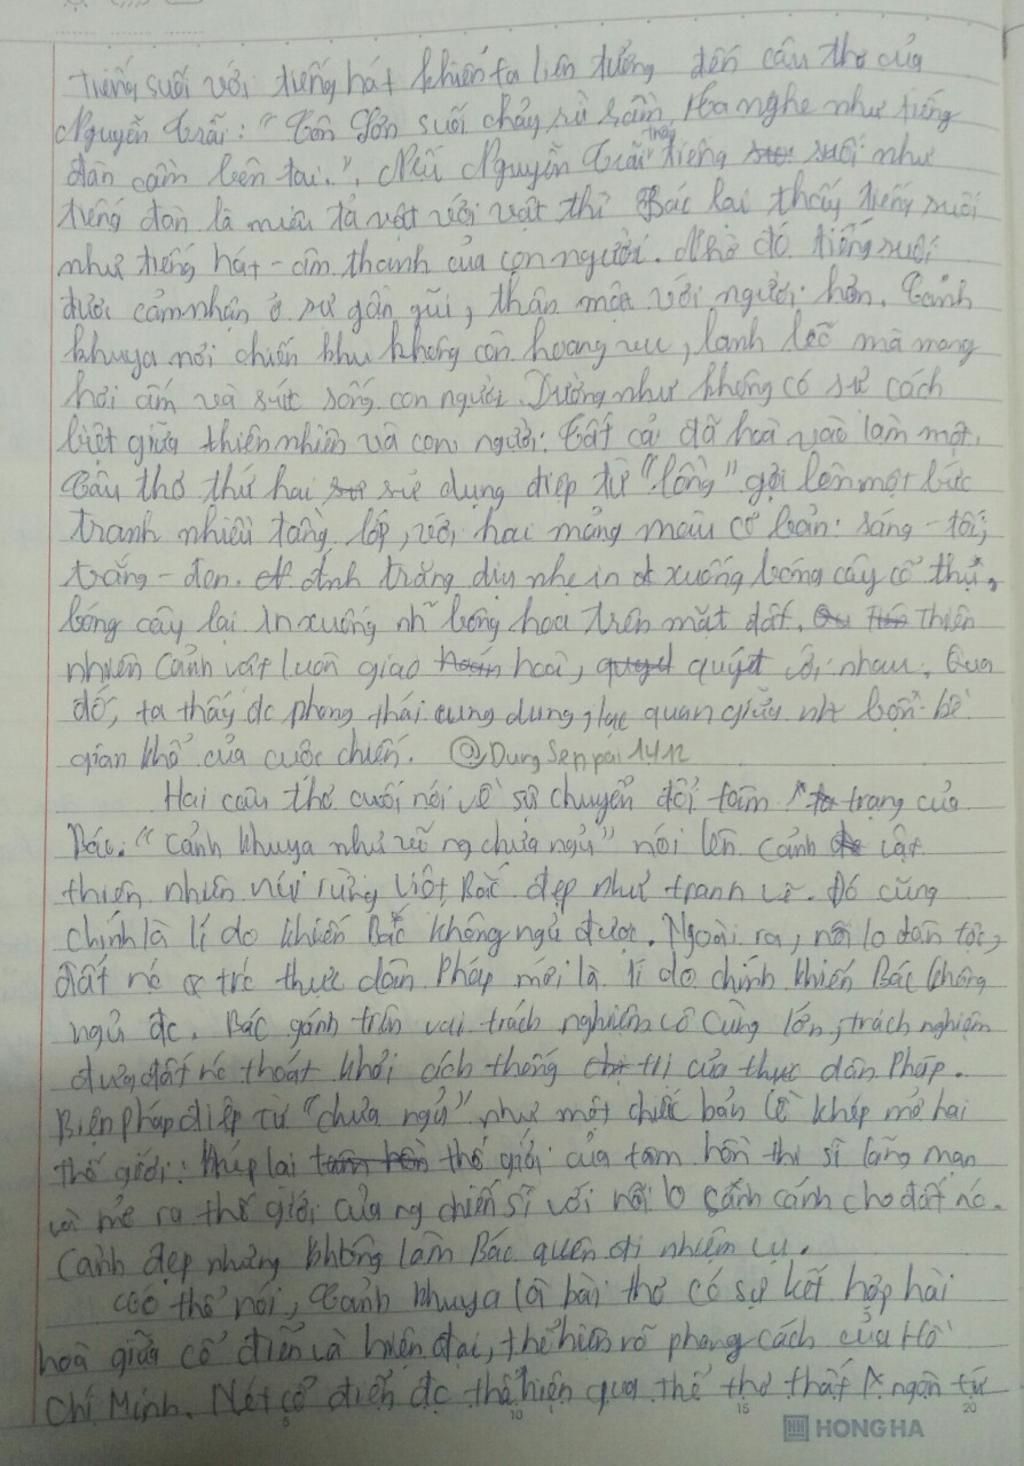 tiếng suối với tiếng hát khiến ta liên tưởng đến câu thơ của
Nguyễn Trãi: "Côn Sơn suối chảy rì rầm, Ta nghe như tiếng
đàn cầm bên tai.". Nếu Nguyễn Trãi thấy tiếng suối như
tiếng đàn là miêu tả vật với vật thì Bác lại thấy tiếng suối
như tiếng hát - âm thanh của con người. Nhờ đó tiếng suối
được cảm nhận ở sự gần gũi, thân mật với người hơn. Cảnh
khuya nơi chiến khu không còn hoang vu, lạnh lẽo mà mang
hơi ấm và sức sống con người. Dường như không có sự cách
biệt giữa thiên nhiên và con người. Tất cả đã hoà vào làm một.
Câu thơ thứ hai sử dụng điệp từ "lồng" gợi lên một bức
tranh nhiều tầng lớp, với hai mảng màu cơ bản: sáng - tối,
trắng - đen. Ánh trăng dịu nhẹ in xuống bóng cây cổ thụ,
bóng cây lại in xuống nh bông hoa trên mặt đất. Thiên
nhiên cảnh vật luôn giao hoà, quyện với nhau. Qua
đó, ta thấy đc phong thái ung dung, lạc quan giữa bộn bề
gian khổ của cuộc chiến. @DungSenpai1412
Hai câu thơ cuối nói về sự chuyển đổi tâm trạng của
Bác. "Cảnh khuya như vẽ ng chưa ngủ" nói lên cảnh vật
thiên nhiên núi rừng Việt Bắc đẹp như tranh vẽ. Đó cũng
chính là lí do khiến Bác không ngủ được. Ngoài ra, nỗi lo dân tộc,
đất nc trc thực dân Pháp mới là lí do chính khiến Bác không
ngủ đc. Bác gánh trên vai trách nghiệm vô cùng lớn, trách nghiệm
đưa đất nc thoát khỏi ách thống trị của thực dân Pháp.
Biện pháp điệp từ "chưa ngủ" như một chiếc bản lề khép mở hai
thế giới: khép lại thế giới của tâm hồn thi sĩ lãng mạn
và mở ra thế giới của ng chiến sĩ với nỗi lo canh cánh cho đất nc.
Cảnh đẹp nhưng không làm Bác quên đi nhiệm vụ.
Có thể nói, Cảnh khuya là bài thơ có sự kết hợp hài
hoà giữa cổ điển và hiện đại, thể hiện rõ phong cách của Hồ
Chí Minh. Nét cổ điển đc thể hiện qua thể thơ thất ngôn tứ
5 10 15 20
HONG HA